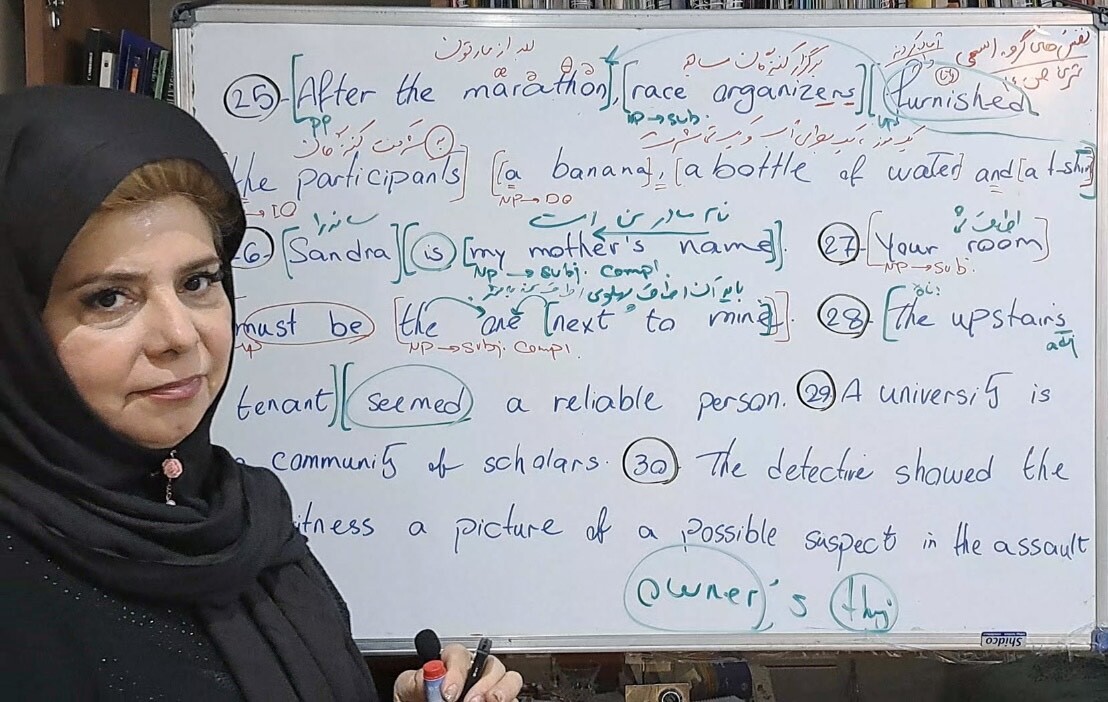 بعد از ماراتون
برگزار کنندگان مسابقه
æ ə θ ə
25-[After the marathon], [race organizers] [furnished
PP NP→Sub. VP
شرکت کنندگان
the participants] [a banana], [a bottle of water] and [a t-shirt]
→IO NP→DO
ساندرا نام مادر من است
26-[Sandra] [is] [my mother's name]. 27-[Your room]
NP→Subj. Compl. NP→Sub.
must be [the one [next to mine]]. 28-[the upstairs
VP NP→Subj. Compl. adj
tenant] [seemed] a reliable person. 29 A university is
community of scholars. 30 The detective showed the
itness a picture of a possible suspect in the assault
owner's thing
Shidco